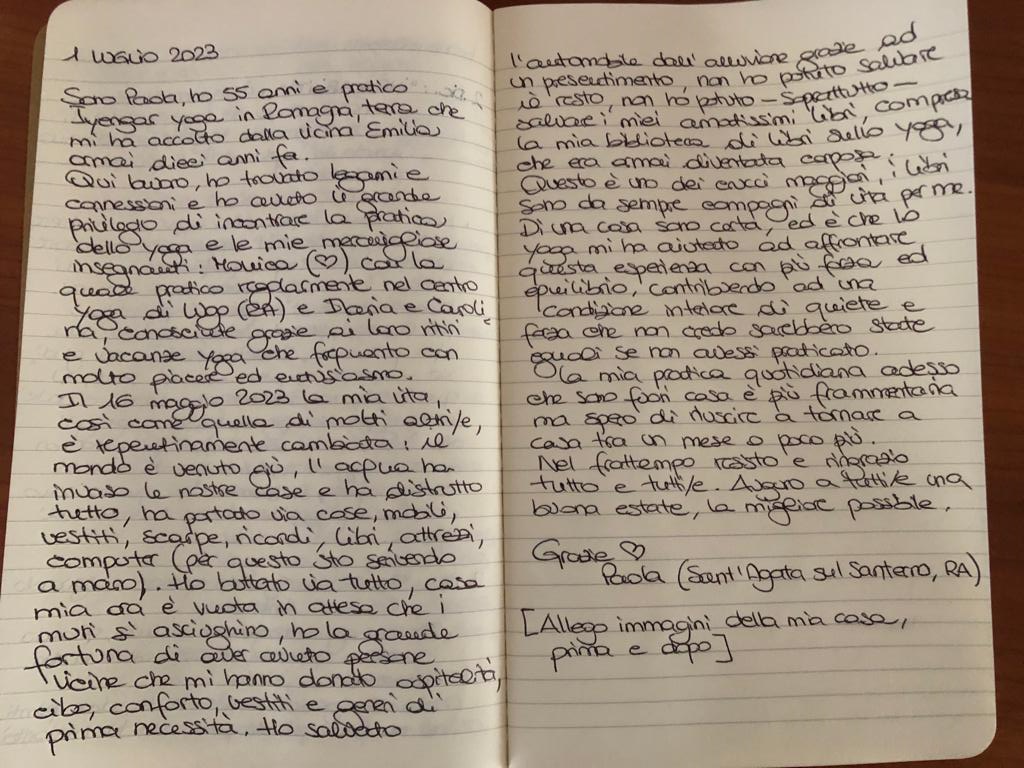 1 LUGLIO 2023
Sono Paola, ho 55 anni e pratico
Iyengar yoga in Romagna, terra che
mi ha accolto dalla vicina Emilia
ormai dieci anni fa.
Qui lavoro, ho trovato legami e
connessioni e ho avuto il grande
privilegio di incontrare la pratica
dello yoga e le mie meravigliose
insegnanti: Monica (♡) con la
quale pratico regolarmente nel centro
yoga di Lugo (RA) e Ilaria e Caroli-
na, conosciute grazie ai loro ritiri
e vacanze yoga che frequento con
molto piacere ed entusiasmo.
Il 16 maggio 2023 la mia vita,
così come quella di molti altri/e,
è repentinamente cambiata: il
mondo è venuto giù, l'acqua ha
invaso le nostre case e ha distrutto
tutto, ha portato via cose, mobili,
vestiti, scarpe, ricordi, libri, attrezzi,
computer (per questo sto scrivendo
a mano). Ho buttato via tutto, casa
mia ora è vuota in attesa che i
muri si asciughino, ho la grande
fortuna di aver avuto persone
vicine che mi hanno donato ospitalità,
cibo, conforto, vestiti e generi di
prima necessità. Ho salvato
l'automobile dall'alluvione grazie ad
un presentimento, non ho potuto salvare
il resto, non ho potuto – soprattutto –
salvare i miei amatissimi libri, compresa
la mia biblioteca di libri sullo yoga,
che era ormai diventata corposa.
Questo è uno dei crucci maggiori, i libri
sono da sempre compagni di vita per me.
Di una cosa sono certa, ed è che lo
yoga mi ha aiutato ad affrontare
questa esperienza con più forza ed
equilibrio, contribuendo ad una
condizione interiore di quiete e
forza che non credo sarebbero state
eguali se non avessi praticato.
La mia pratica quotidiana adesso
che sono fuori casa è più frammentaria
ma spero di riuscire a tornare a
casa tra un mese o poco più.
Nel frattempo resisto e ringrazio
tutto e tutti/e. Auguro a tutti/e una
buona estate, la migliore possibile.
Grazie ♡
Paola (Sant'Agata sul Santerno, RA)
[Allego immagini della mia casa,
prima e dopo]